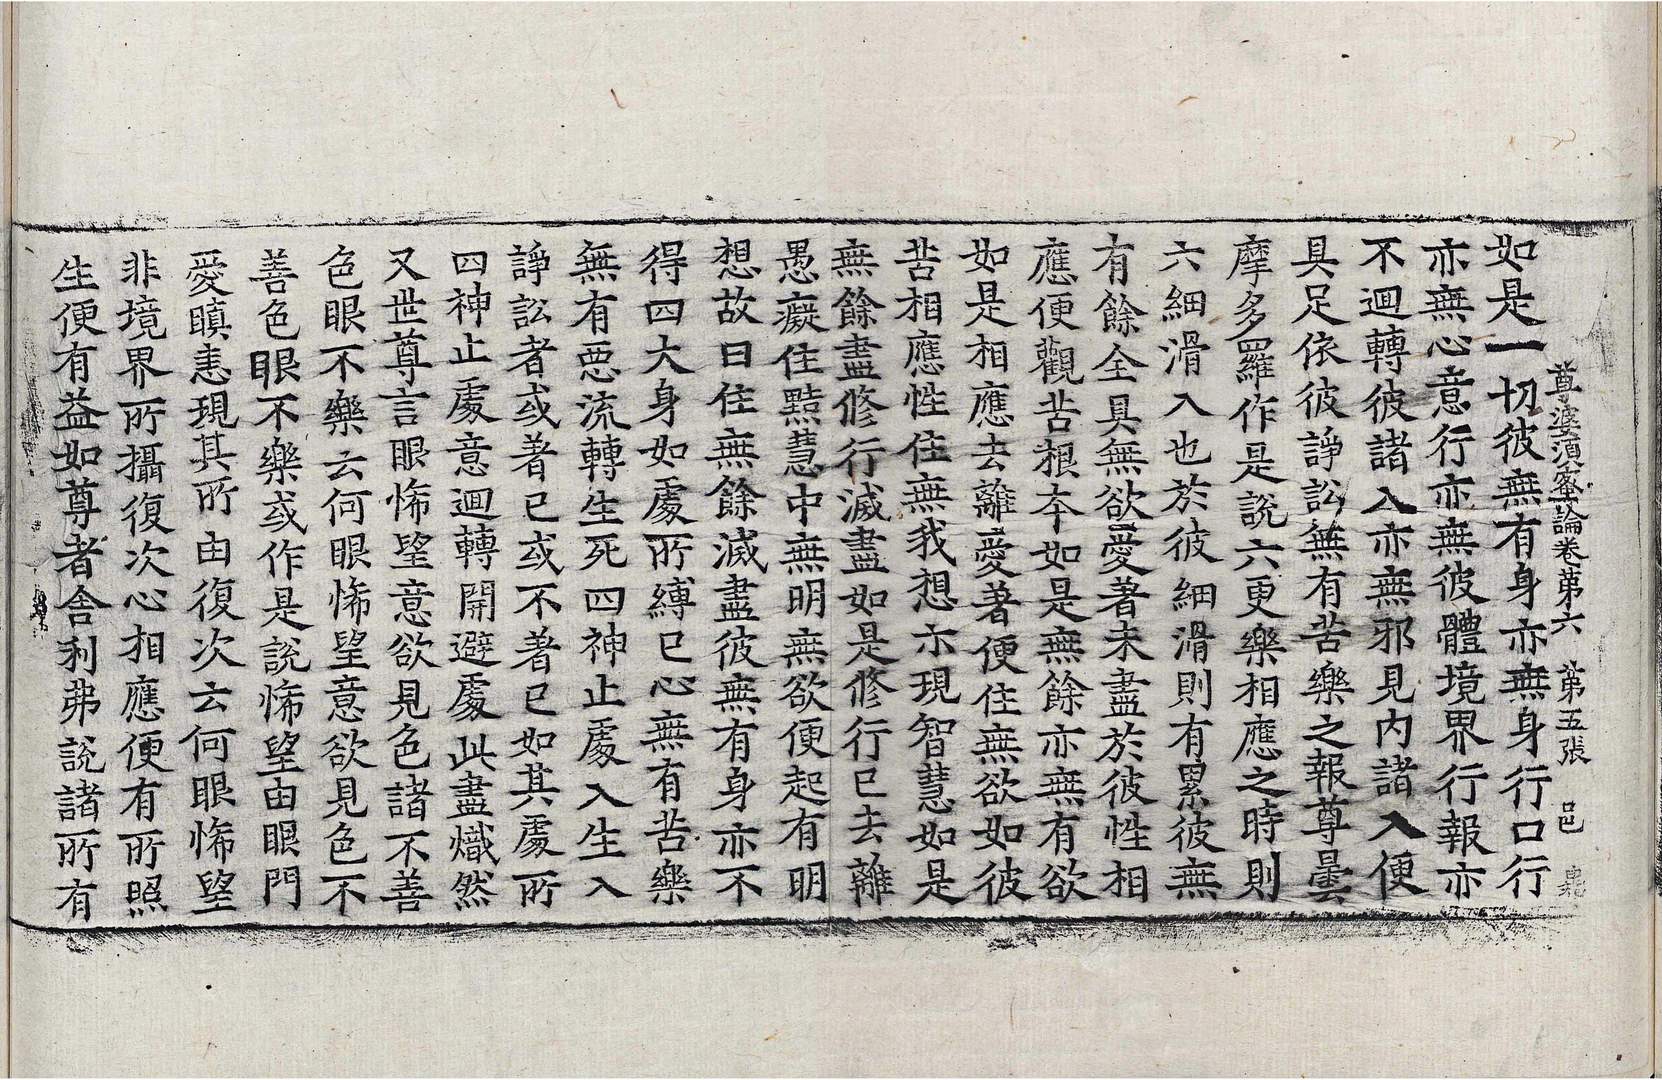 尊婆須蜜論卷第六　第五張　邑
如是一切彼無有身亦無身行口行
亦無心意行亦無彼體境界行報亦
不迴轉彼諸入亦無邪見内諸入便
具足依彼諍訟無有苦樂之報尊曇
摩多羅作是說六更樂相應之時則
六細滑入也於彼細滑則有累彼無
有餘全具無欲愛著未盡於彼性相
應便觀苦根本如是無餘亦無有欲
如是相應去離愛著便住無欲如彼
苦相應性住無我想亦現智慧如是
無餘盡修行滅盡如是修行已去離
愚癡住黠慧中無明無欲便起有明
想故曰住無餘滅盡彼無有身亦不
得四大身如處所縛已心無有苦樂
無有惡流轉生死四神止處入生入
諍訟者或著已或不著已如其處所
四神止處意迴轉開避處此盡熾然
又世尊言眼悕望意欲見色諸不善
色眼不樂云何眼悕望意欲見色不
善色眼不樂或作是說悕望由眼門
愛瞋恚現其所由復次云何眼悕望
非境界所攝復次心相應便有所照
生便有益如尊者舍利弗說諸所有